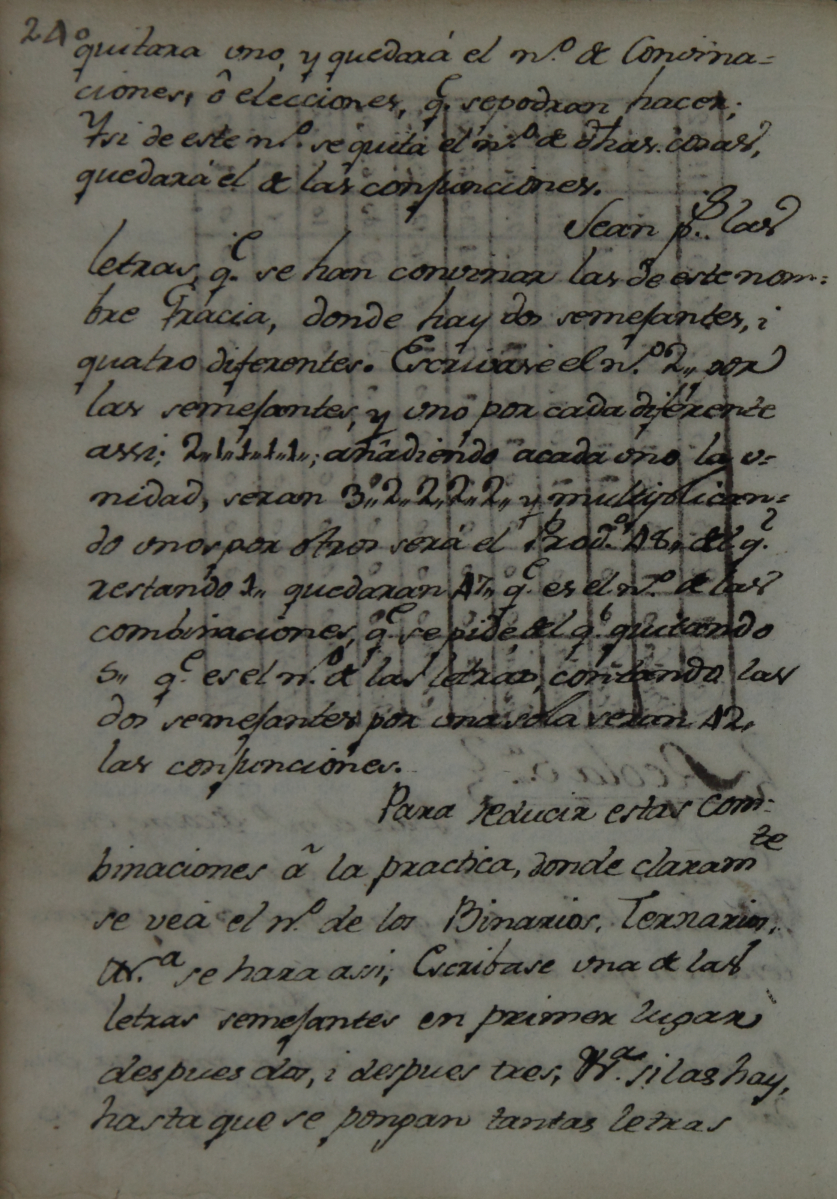 240
quitara uno, y quedará el n.º de Convina=
ciones, ô elecciones, q.e se podran hacer;
Y si de este n.º se quita el n.º de dhas. cosas,
quedará el de las conjunciones.
Sean p.r las
letras, q.e se han convinar las de este nom=
bre Gracia, donde hay dos semejantes, i
quatro diferentes. Escrivase el n.º 2,, por
las semejantes, y uno por cada diferente
assi; 2,,1,,1,,1,,1,,; añadiendo acada uno la u=
nidad, seran 3,,2,,2,,2,,2,, y multiplican=
do unos por otros será el Prod.º 48,, del q.l
restando 1,, quedaran 47,, q.e es el n.º de las
combinaciones, q.e se pide, del q.l quitando
5,, q.e es el n.º de las letras, contando las
dos semejantes por una sola seran 42,
las conjunciones.
Para reducir estas com=
binaciones â la practica, donde claram.te
se vea el n.º de los Binarios, Ternarios,
&.a se hara assi; Escribase una de las
letras semejantes en primer lugar
despues dos, i despues tres, &.a si las hay,
hasta que se pongan tantas letras